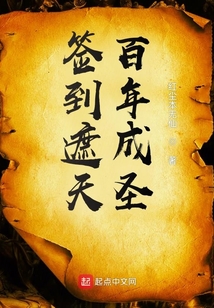 签到遮天
百年成圣
著
起点中文网